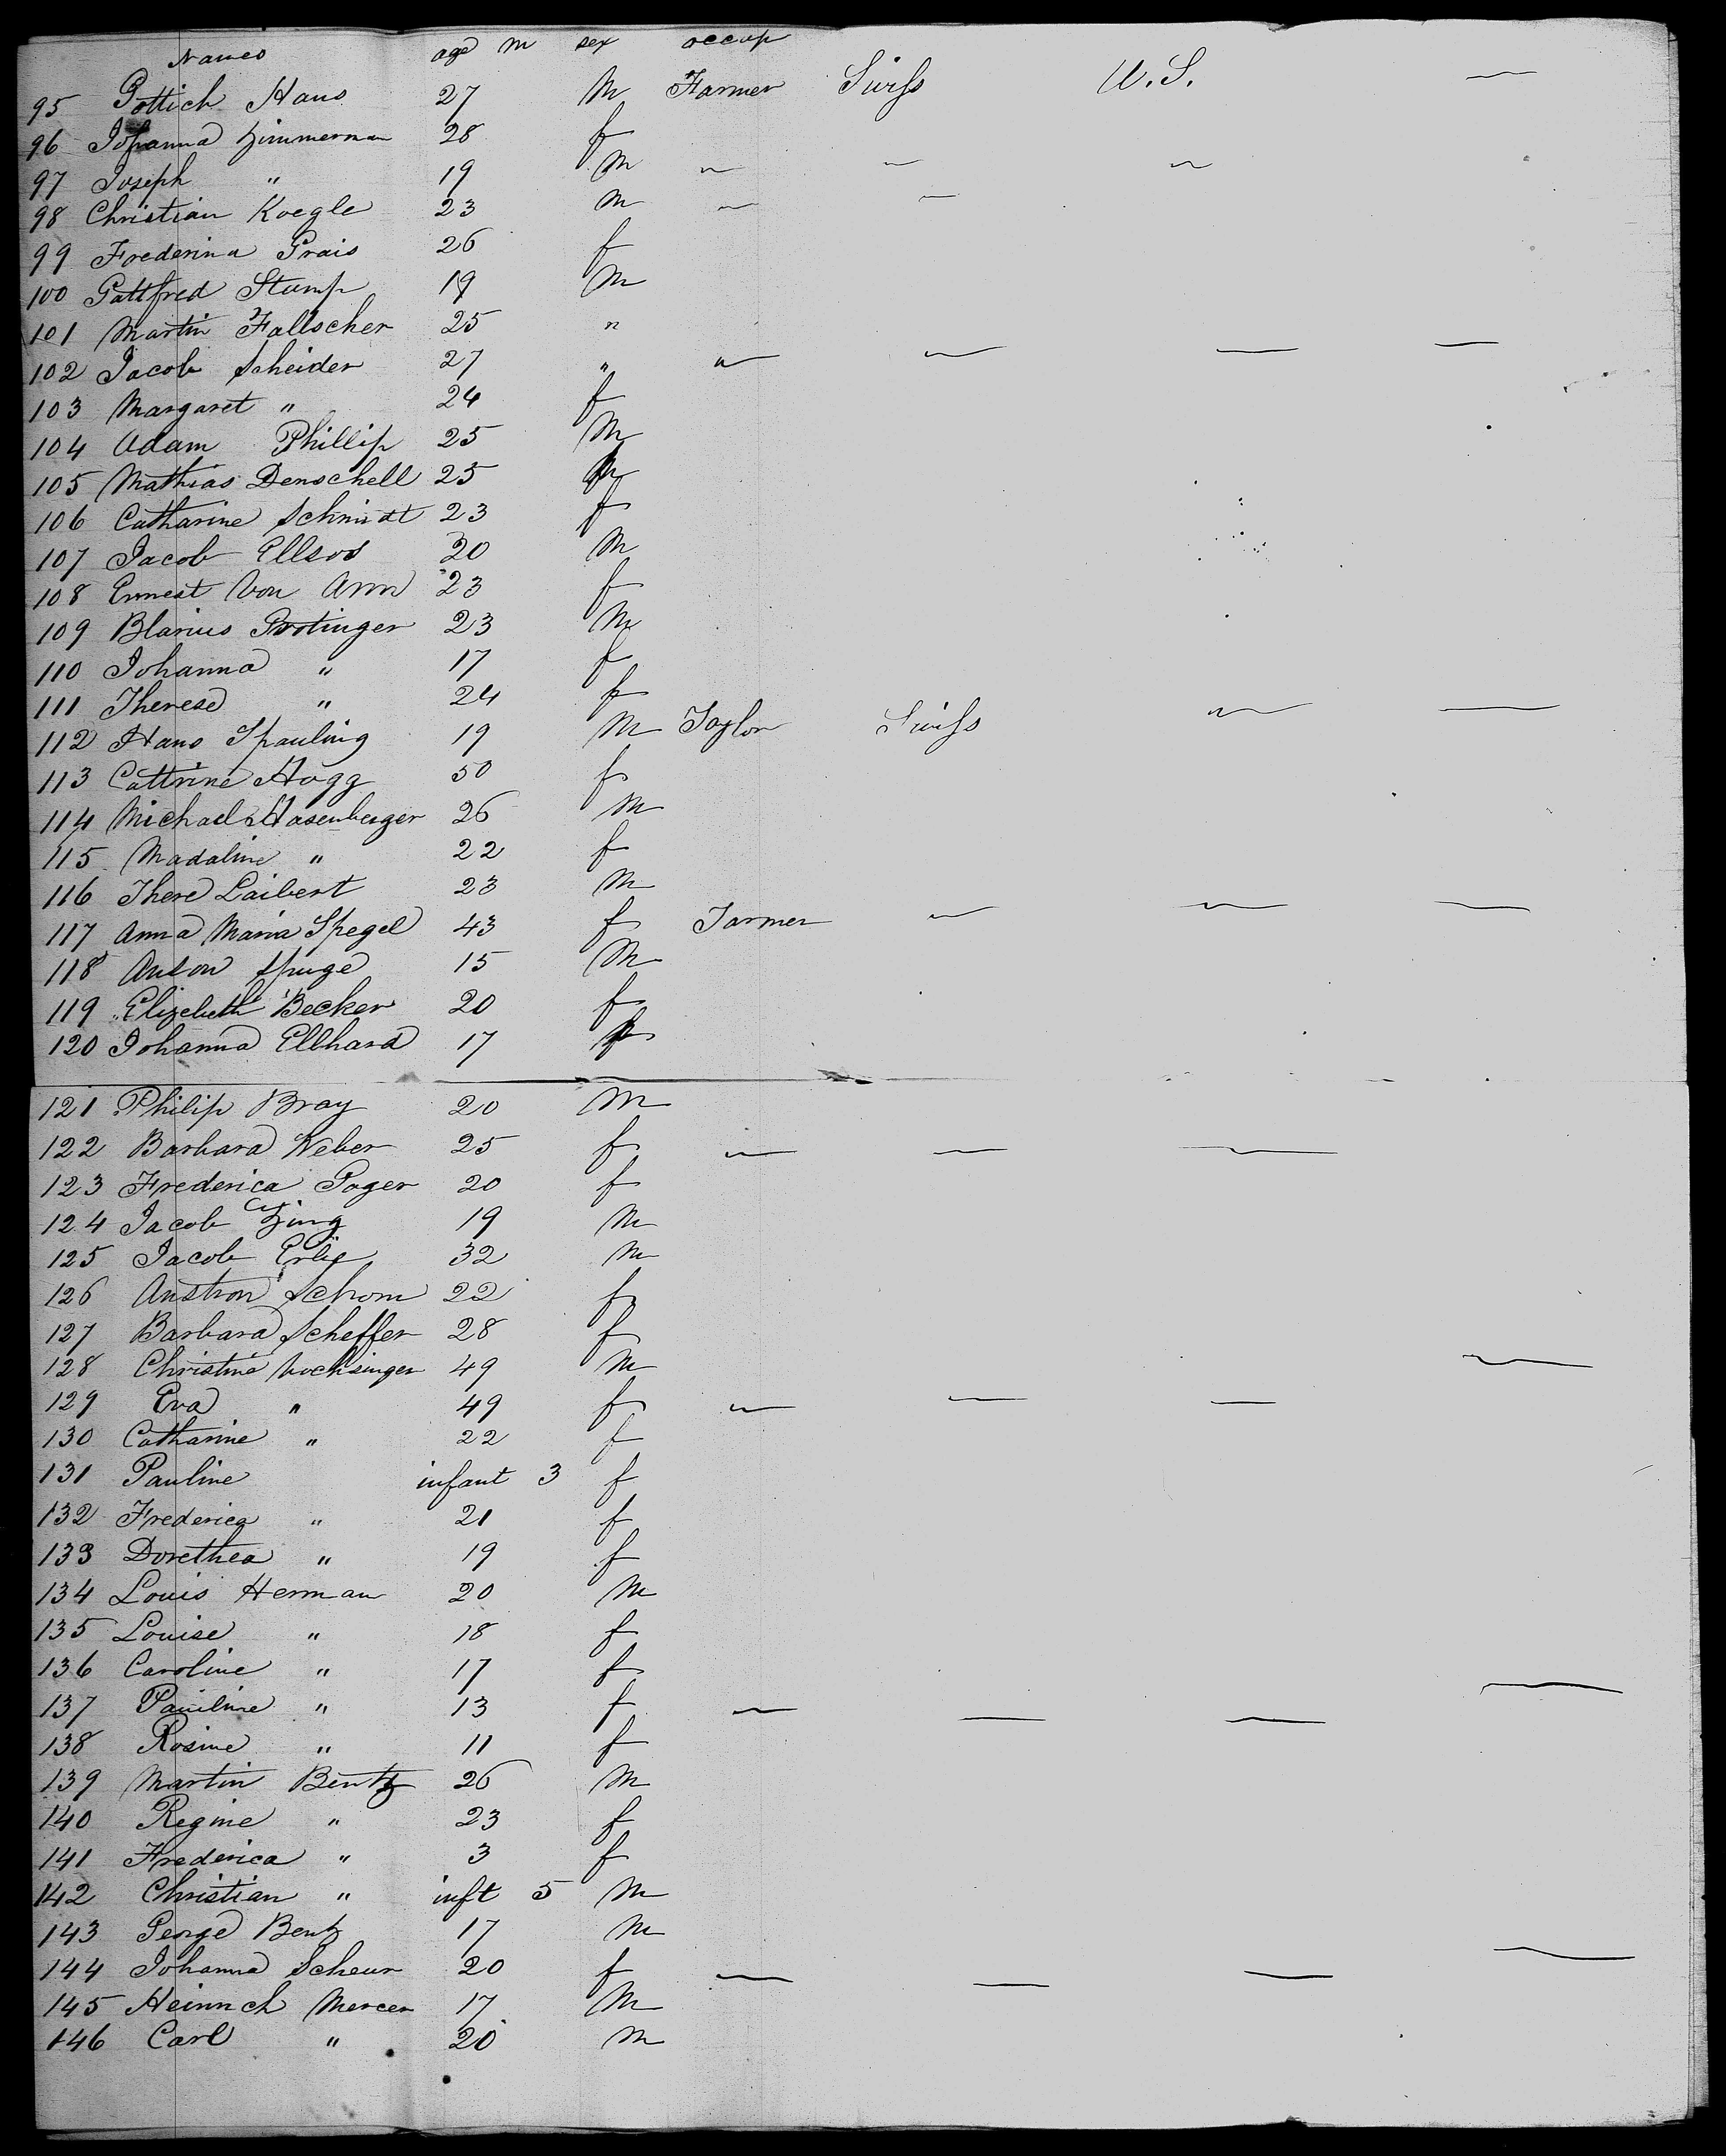 Names age m sex occup
95 Gottich Hans 27 M Farmer Swiss U.S. —
96 Johanna Zimmerman 28 f
97 Joseph " 19 M — — —
98 Christian Koegle 23 M — —
99 Frederina Grais 26 f
100 Gattfred Stump 19 M
101 Martin Fallscher 25 "
102 Jacob Scheider 27 " — — — —
103 Margaret " 24 f
104 Adam Phillip 25 M
105 Mathias Denschell 25 M
106 Catharine Schmidt 23 f
107 Jacob 20 M
108 Ernest Von Ann 23 f
109 Blarius Grotinger 23 M
110 Johanna " 17 f
111 Therese " 24 f
112 Hans Spauling 19 M Taylor Swiss — —
113 Cattrine Hogg 50 f
114 Michael Hasenberger 26 M
115 Madaline " 22 f
116 There Laibert 23 M
117 Anna Maria Spegel 43 f Farmer — — —
118 Anton 15 M
119 Elizebeth Becker 20 f
120 Johanna Ellhard 17 f
121 Philip Bray 20 M
122 Barbara Weber 25 f — — —
123 Frederica Goger 20 f
124 Jacob Zing 19 M
125 Jacob 32 M
126 Schom 22 f
127 Barbara Scheffer 28 f
128 Christine 49 M —
129 Eva " 49 f — — —
130 Catharine " 22 f
131 Pauline infant 3 f
132 Frederica " 21 f
133 Dorethea " 19 f
134 Louis Herman 20 M
135 Louise " 18 f
136 Caroline " 17 f
137 Pauline " 13 f — — — —
138 Rosine " 11 f
139 Martin Bentz 26 M
140 Regine " 23 f
141 Frederica " 3 f
142 Christian " inft 5 M
143 George Bentz 17 M
144 Johanna Scheur 20 f — — — —
145 Heinrich Mercer 17 M
146 Carl " 20 M